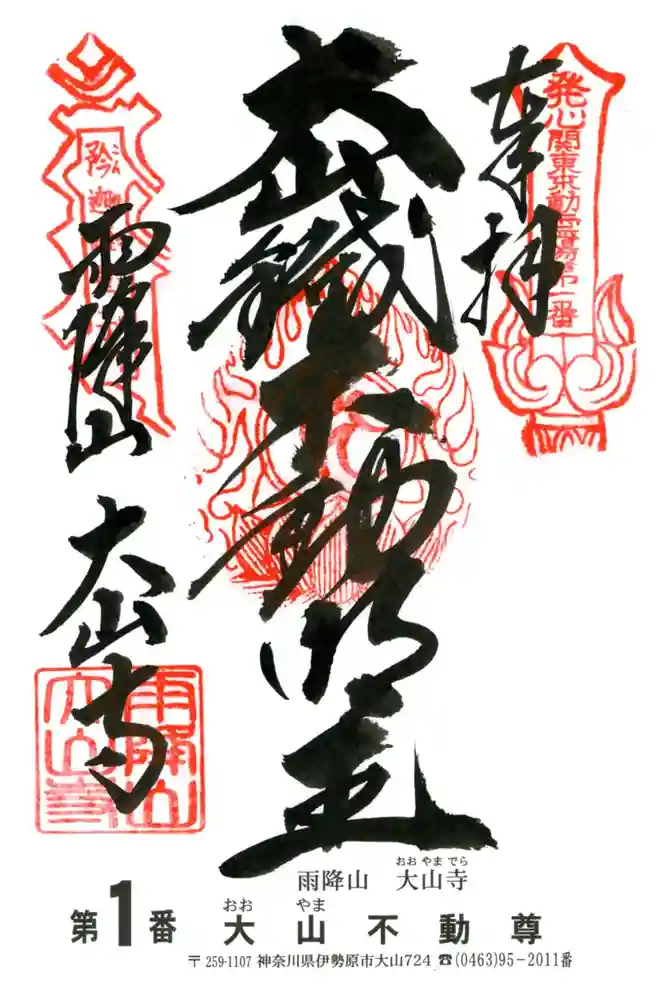 発心関東
第一番
奉拝
大山鐵不動明王
雨降山
大山寺
雨降山
大山寺
雨降山　大山寺
おお やま でら
第1番　大山不動尊
おお　やま
〒259-1107 神奈川県伊勢原市大山724 ☎(0463)95-2011番